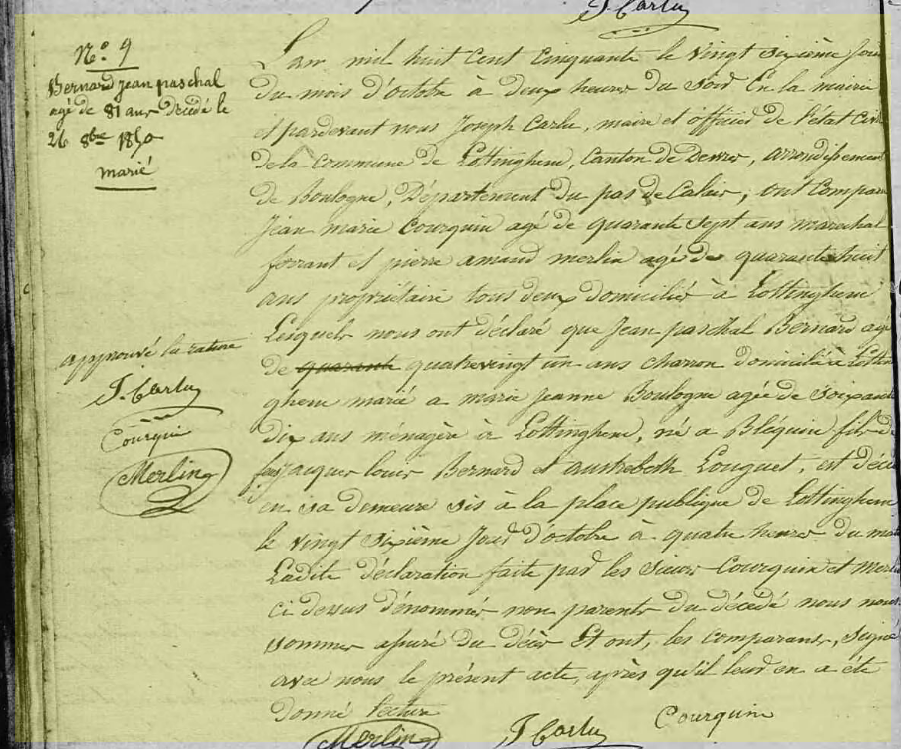 J. Carlu
N.o 9
Bernard jean paschal
agé de 81 ans Décédé le
26 8bre 1850
marié
L'an mil huit cent cinquante le vingt sixième jour
du mois d'octobre à deux heures du soir En la mairie
et pardevant nous Joseph Carlu, maire et officier de l'état Civil
de la Commune de Lottinghem, Canton de Desvres, arrondissement
de Boulogne, Département du pas de Calais, ont Comparu
Jean marie Courquin agé de quarante Sept ans marechal
ferrant et pierre amand merlin agé de quarante huit
ans propriétaire tous deux domiciliés à Lottinghem
Lesquels nous ont déclaré que Jean paschal Bernard agé
de quarante quatrevingt un ans charron domicilié à Lottin
ghem marié a marie Jeanne Boulogne agée de soixante
dix ans ménagère à Lottinghem, né a Bléquin fils de
feu jacques louis Bernard et austrebeth Louguet, est décé
en sa demeure sis à la place publique de Lottinghem
le vingt sixième Jour d'octobre à quatre heures du mat
Ladite déclaration faite par les sieurs Courquin et Merlin
ci dessus dénommés non parents du décédé nous nous
sommes assuré du décès Et ont, les comparans, signé
avec nous le présent acte, après qu'il leur en a été
Donné lecture
approuvé la rature
J. Carlu
Courquin
Merlin
Merlin J. Carlu Courquin